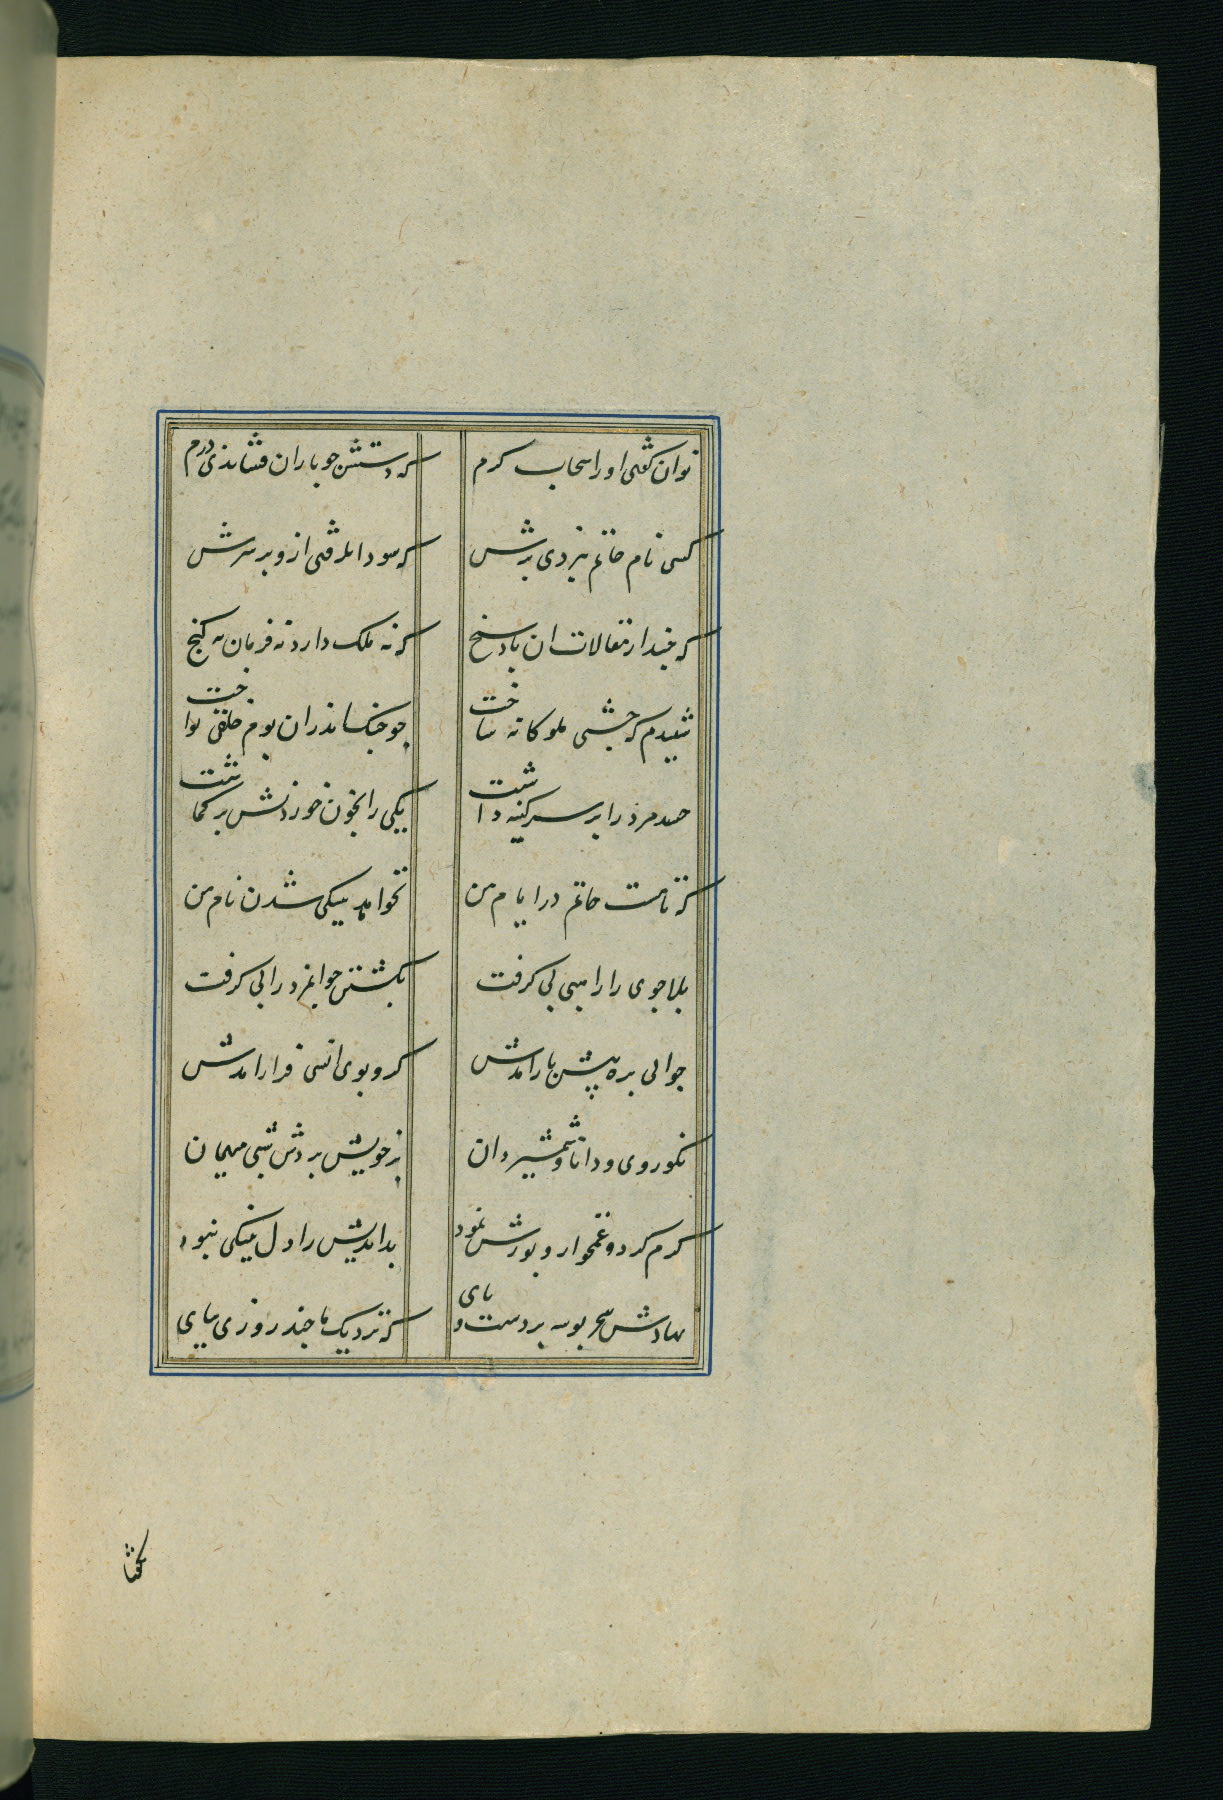 توان گفتی او را سحاب کرم که دستش چو باران فشاندی درم
کسی نام حاتم نبردی برش که سودا نرفتی ازو بر سرش
که چند از مقالات ان بادسنج که نه ملک دارد نه فرمان نه گنج
شنیدم که جشنی ملوکانه ساخت چو چنگ اندران بزم خلقی نواخت
حسد مرد را بر سر کینه داشت یکی را بخون خوردنش بر گماشت
که تا هست حاتم در ایام من نخواهد بنیکی شدن نام من
بلا جوی راه بنی طی گرفت بکشتن جوانمرد را پی گرفت
جوانی بره پیش باز امدش کزو بوی انسی فراز امدش
نکو روی و دانا و شمشیر دان بر خویش بردش شبی میهمان
کرم کرد و غمخوار و پوزش نمود بد اندیش را دل بنیکی ربود
نهادش سحر بوسه بر دست و پای که نزدیک ما چند روزی بپای
بگفتا